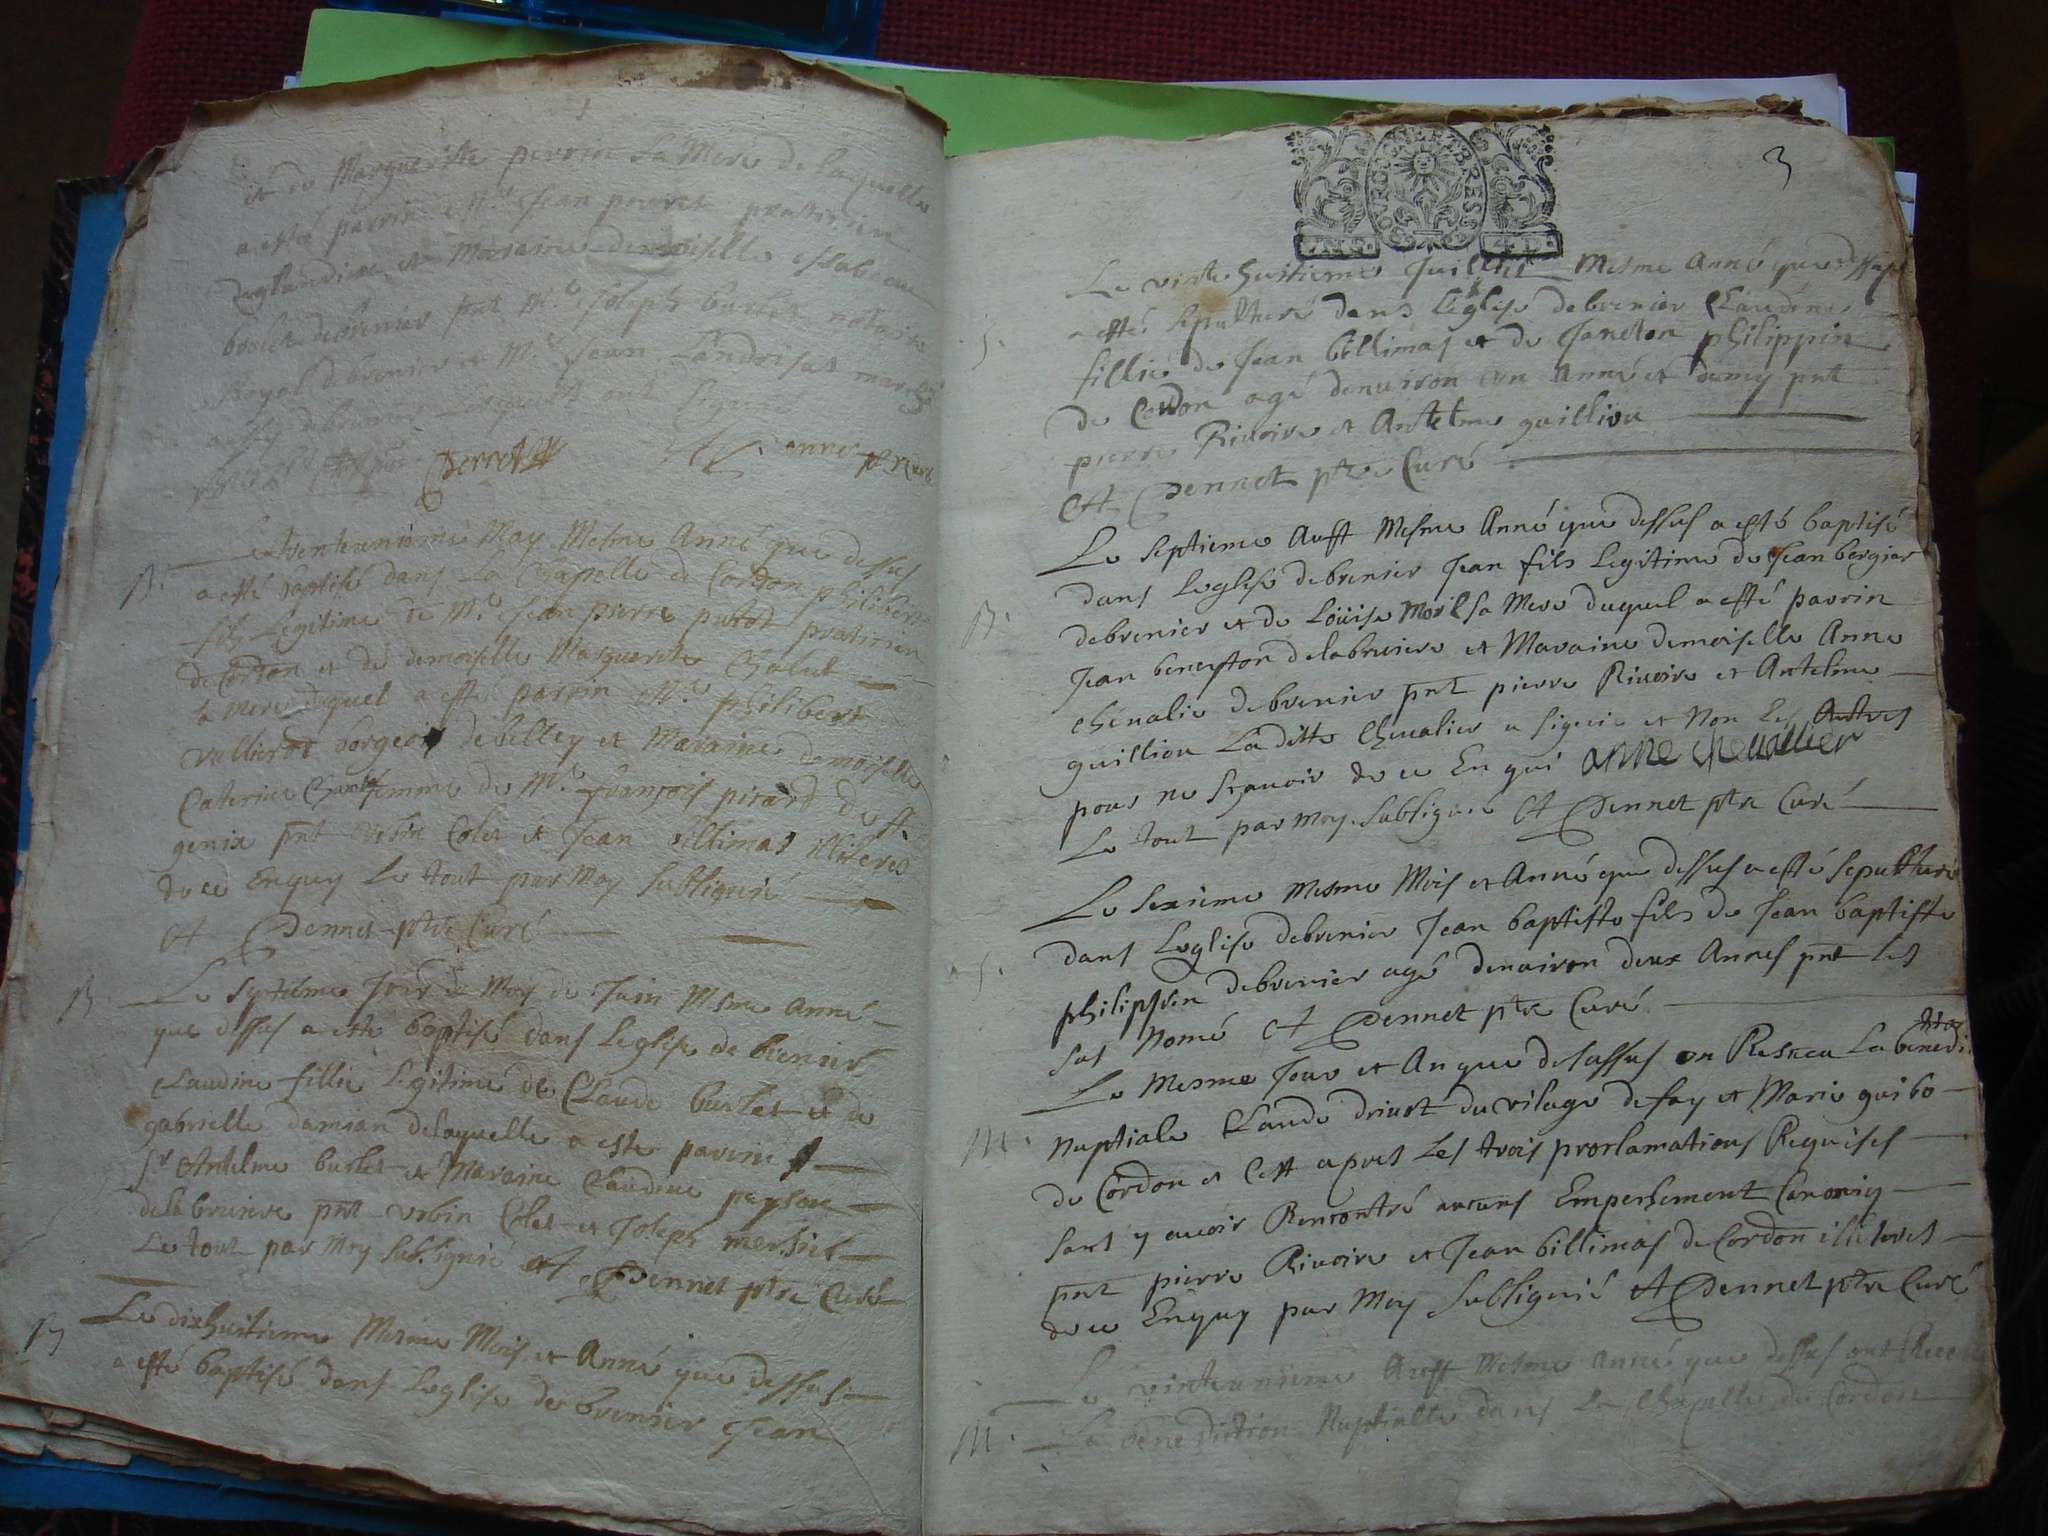 et de Marguerite perrin sa Mere de laquelle
a esté parrin Mr Jean pouret praticien
et Maraine demoiselle essabeau
debrenier pnt Mr Joseph burlet notaire
Royal debrenier et Mr Jean
debrenier ont signés
Perret
B. Le trenteunieme May Mesme Anné que dessus
a esté baptisé dans la Chapelle de Cordon philibert
fils Legitime de Mr Jean pierre purot praticien
de Cordon et de demoiselle Marguerite Chalut
sa mere duquel a esté parrin Mr philibert
vullierot borgeois debelley et Maraine demoiselle
Caterine femme de Mr françois picard de st
genix pnt urbin Colet et Jean billimas illiteres
de ce Enquy Le tout par Moy Subsigné
A Dennet ptre Curé
B. Le Septiesme Jour du Moy de Juin Mesme Anné
que dessus a esté baptisé dans Leglise de brenier
Claudine fillie legitime de Claude burlet et de
gabrielle damian delaquelle a esté parrin
Sr Antelme burlet et Maraine Claudine peysson
delabruiere pnt urbin Colet et Joseph merlier
Le tout par Moy Subsigné A Dennet ptre Curé
B Le dixhuitieme Mesme Mois et Anné que dessus
a esté baptisé dans Leglise de brenier Jean
3
Le vinte huitieme Juilliet Mesme Anné que dessus
S. a esté Sepulturé dans Leglise debrenier Claudine
fillie de Jean billimas et de Janeton philippin
de Cordon agé denuiron un Anné et demy pnt
pierre Riuoire et Antelme guilliou
A Dennet ptre Curé
Le Septieme Aust Mesme Anné que dessus a esté baptisé
dans Leglise debrenier Jean fils Legitime de Jean bergier
B. debrenier et de Loüise Morel sa Mere duquel a esté parrin
Jean beneyton delabruiere et Maraine demoiselle Anne
cheualie debrenier pnt pierre Riuoire et Antelme
guilliou La ditte Cheualier a signé et Non Les Autres
pour ne sçauoir de ce En qui anne chevallier
Le tout par Moy Subsigné A Dennet ptre Curé
Le Sexieme Mesme Mois et Anné que dessus a esté Sepulturé
dans Leglise debrenier Jean baptiste fils de Jean baptiste
S. philippin debrenier agé denuiron deux Annes pnt Les
sus Nomé A Dennet ptre Curé
Le Mesme Jour et An que desussus on Resceu La benedi
ction
M. Nuptiale Claude driuot du vilage defay et Marie guibo
de Cordon et Cest apres Les trois proclamations Requises
sans y auoir Rencontré aucuns Empechement Canoniq
pnt pierre Riuoire et Jean billimas de Cordon illiteres
de ce Enquy par Moy Subsigné A Dennet ptre Curé
Le vinteunieme Aust Mesme Anné que dessus ont Receu
M. La benediction Nuptialle dans La Chapelle de Cordon